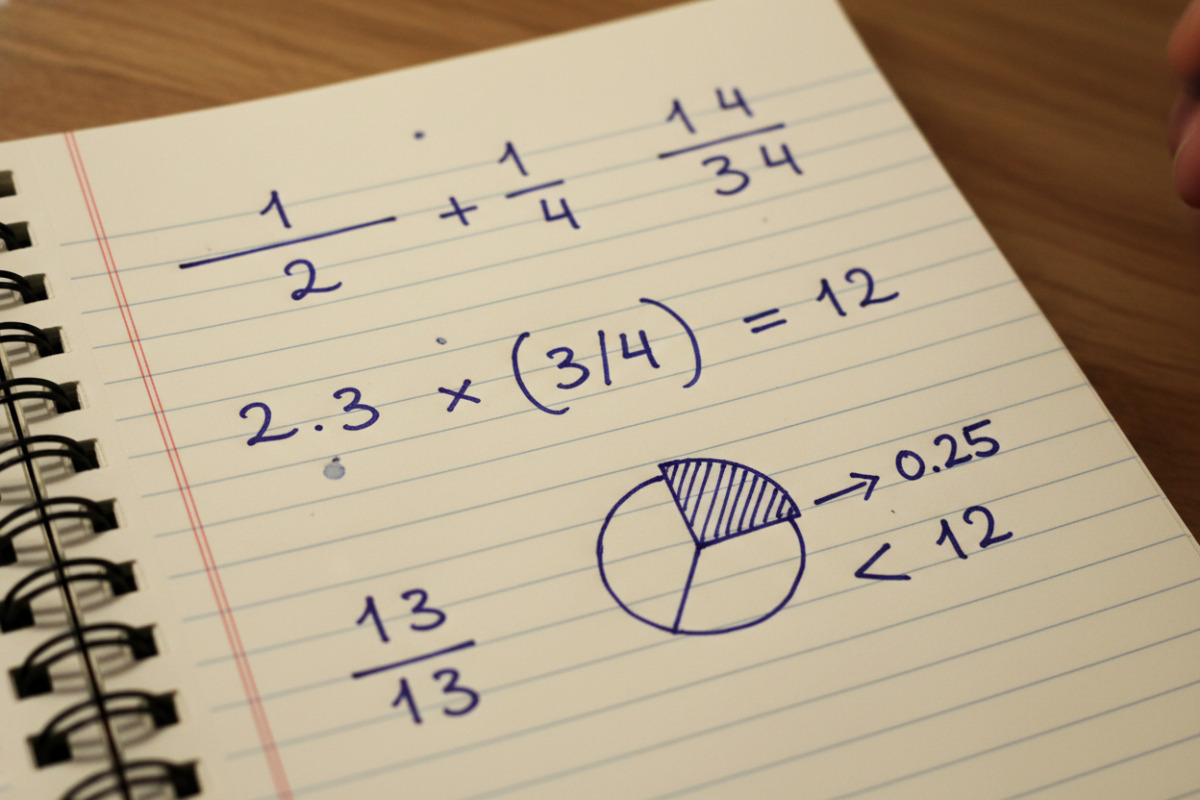 1/2 + 1/4 14/34
2.3 × (3/4) = 12
→ 0.25
< 12
13/13